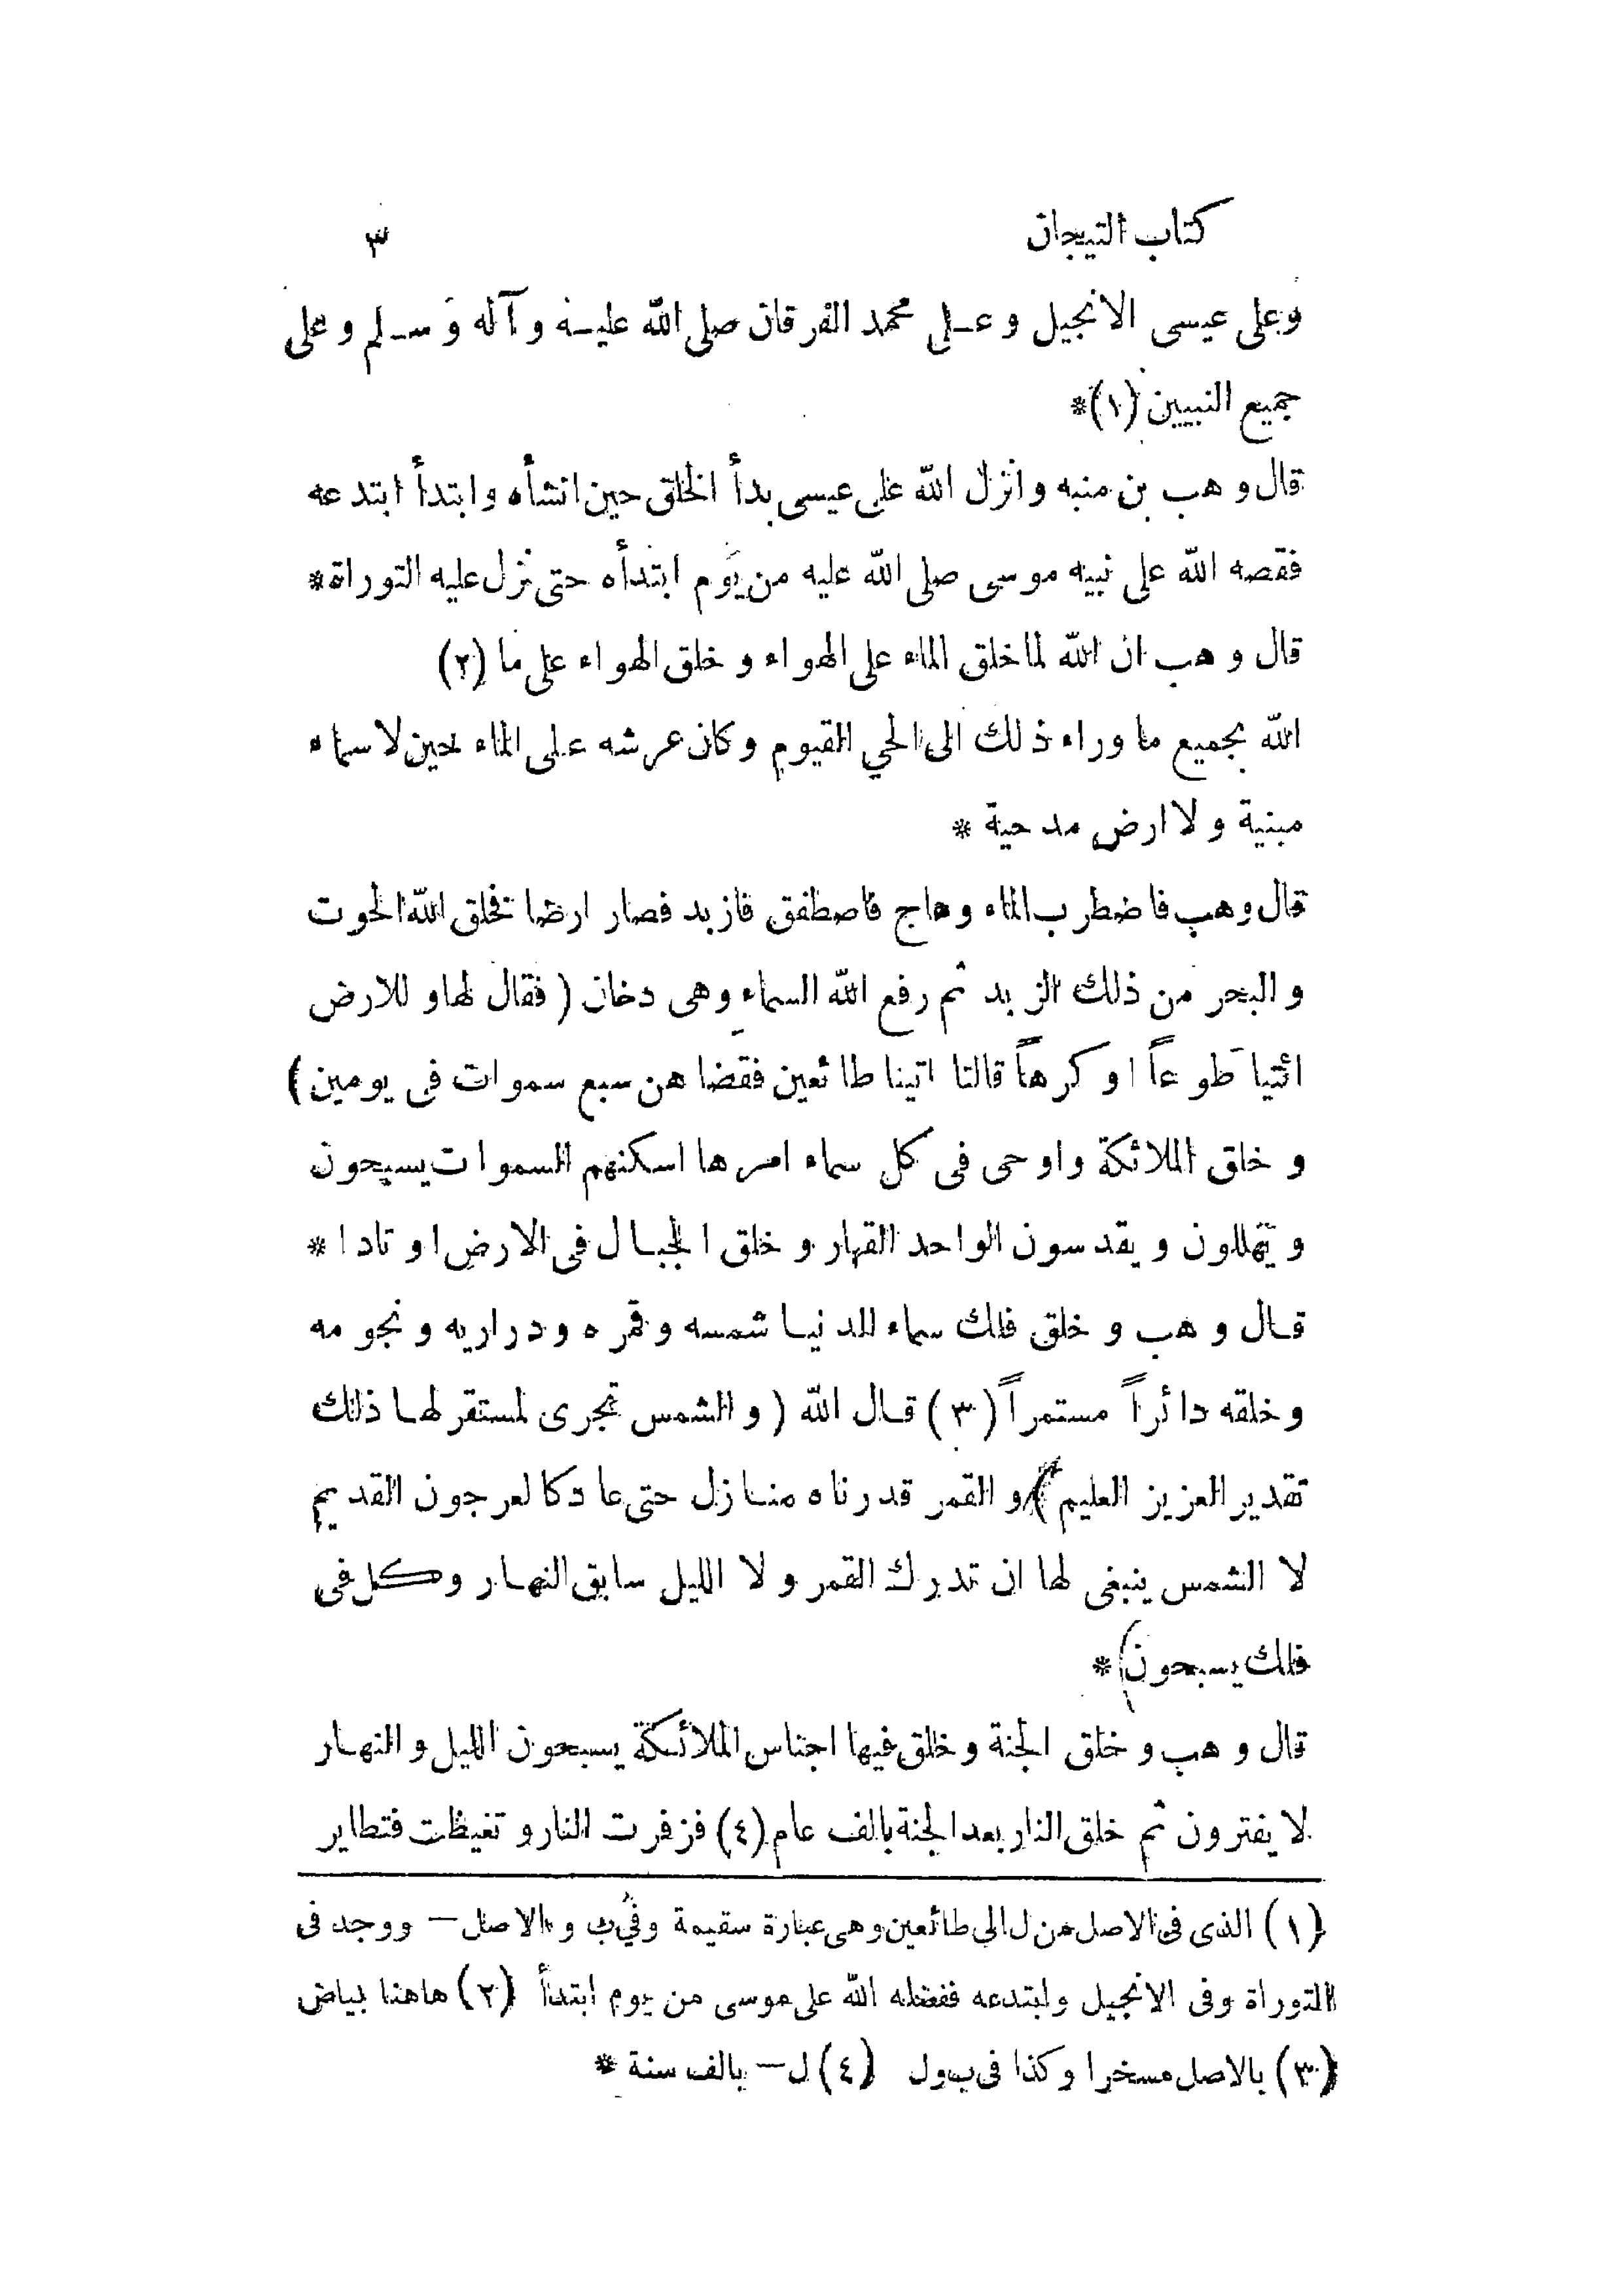 كتاب التيجان ٣
وعلى عيسى الانجيل وعلى محمد الفرقان صلى الله عليه وآله وسلم وعلى
جميع النبيين (١)*
قال وهب بن منبه وانزل الله على عيسى بدأ الخلق حين انشأه وابتدأ ابتدعه
فقصه الله على نبيه موسى صلى الله عليه من يوم ابتدأه حتى نزل عليه التوراة*
قال وهب ان الله لما خلق الماء على الهواء وخلق الهواء على ما (٢)
الله بجميع ما وراء ذلك الى الحي القيوم وكان عرشه على الماء حين لا سماء
مبنية ولا ارض مدحية *
قال وهب فاضطرب الماء وهاج فاصطفق فازبد فصار ارضا فخلق الله الحوت
والبحر من ذلك الزبد ثم رفع الله السماء وهى دخان (فقال لها وللارض
ائتيا طوعاً او كرهاً قالتا اتينا طائعين فقضاهن سبع سموات فى يومين)
وخلق الملائكة واوحى فى كل سماء امرها اسكنهم السموات يسبحون
ويهللون ويقدسون الواحد القهار وخلق الجبال فى الارض اوتادا *
قال وهب وخلق فلك سماء للدنيا شمسه وقمره ودراريه ونجومه
وخلقه دائراً مستمراً (٣) قال الله (والشمس تجرى لمستقر لها ذلك
تقدير العزيز العليم) والقمر قدرناه منازل حتى عاد كالعرجون القديم
لا الشمس ينبغى لها ان تدرك القمر ولا الليل سابق النهار وكل فى
فلك يسبحون) *
قال وهب وخلق الجنة وخلق فيها اجناس الملائكة يسبحون الليل والنهار
لا يفترون ثم خلق النار بعد الجنة بالف عام (٤) فزفرت النار وتغيظت فتطاير
(١) الذى فى الاصل من ل الي طائعين وهى عبارة سقيمة وفي ب والاصل — ووجد فى
التوراة وفى الانجيل وابتدعه ففضله الله على موسى من يوم ابتدأ (٢) هاهنا بياض
(٣) بالاصل مسخرا وكذا فى ب ول (٤) ل — بالف سنة *